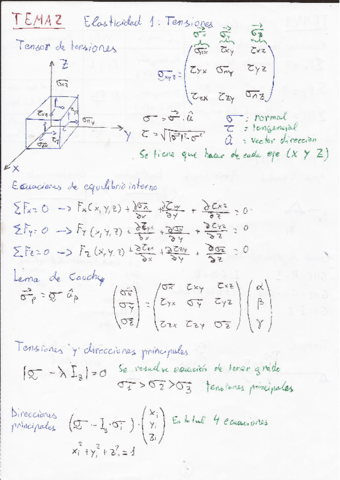 TEMA 2 Elasticidad 1: Tensiones
Tensor de tensiones
σx σy σz
σxyz = ( σnx τxy τxz
τyx σny τyz
τzx τzy σnz )
Z
Y
X
σ = σ · û
τ = √|σ|² - σ²
σ: normal
τ: tangencial
û: vector dirección
Se tiene que hacer de cada eje (X Y Z)
Ecuaciones de equilibrio interno
ΣFx = 0 → Fx(x,y,z) + ∂σx/∂x + ∂τxy/∂y + ∂τxz/∂z = 0
ΣFy = 0 → Fy(x,y,z) + ∂τyx/∂x + ∂σy/∂y + ∂τyz/∂z = 0
ΣFz = 0 → Fz(x,y,z) + ∂τzx/∂x + ∂τzy/∂y + ∂σz/∂z = 0
Lema de Cauchy
σp = σ ûp
( σx ) = ( σx τxy τxz ) ( α )
( σy ) = ( τyx σy τyz ) ( β )
( σz ) = ( τzx τzy σz ) ( γ )
Tensiones y direcciones principales
|σ - λ I3| = 0 Se resuelve ecuación de tercer grado
σ1 > σ2 > σ3 tensiones principales
Direcciones principales (σ - I3·σi) · ( xi yi zi ) En total 4 ecuaciones
xi² + yi² + zi² = 1